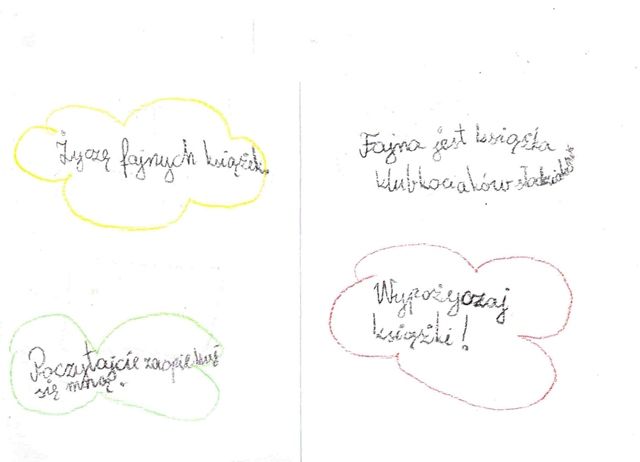 Życzę fajnych książek.
Fajna jest książka
klub kociaków słodziaków
Poczytajcie zaopiekuj
się mną.
Wypożyczaj
książki!